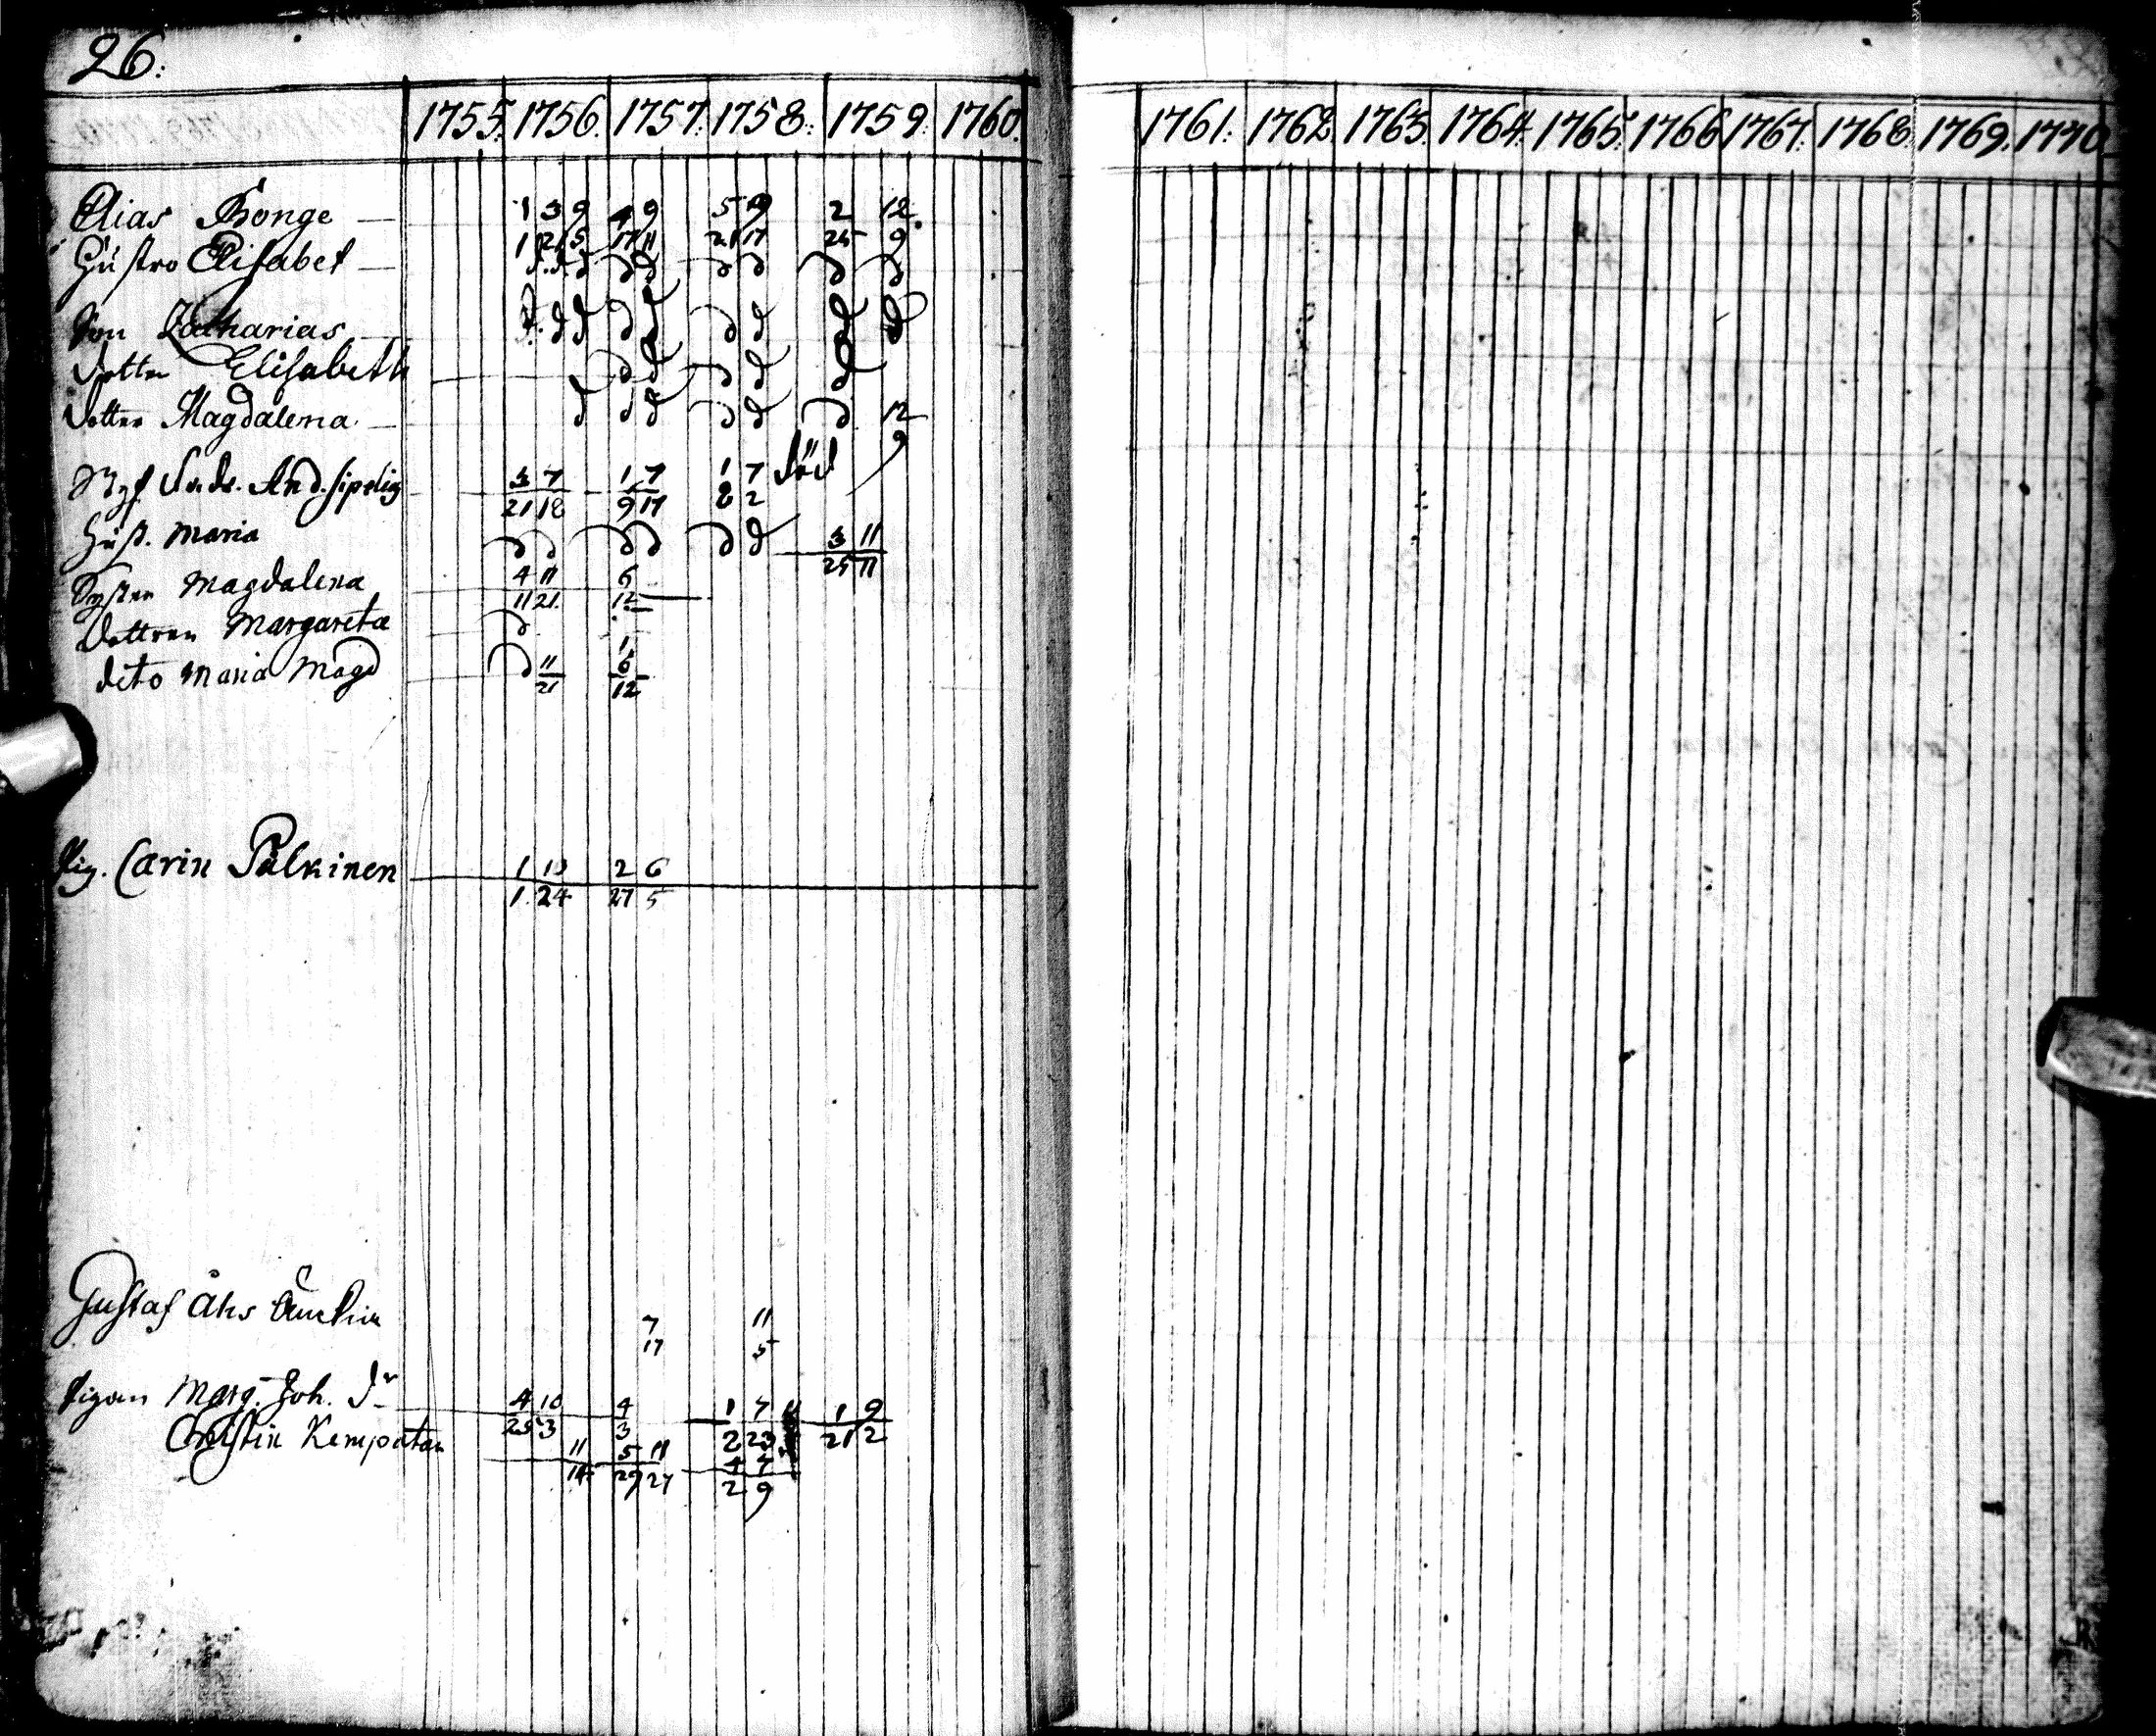 26:
1755. 1756. 1757: 1758: 1759: 1760. 1761: 1762. 1763. 1764. 1765: 1766 1767: 1768 1769. 1770
Elias 1 3 9 4 9 5 9 2 12
1 25 17 11 21 17 25 9
Hustro Elisabet
Son Zacharias
dotter Elisabeth
dotter Magdalena 12
9
And. Sipelig 3 7 1 7 1 7 död
21 18 9 17 8 2
Hust. Maria 3 11
25 11
Syster Magdalena 4 11 6
11 21. 12
dottren Margareta
1
dito Maria Magd 11 6
21 12
Pig. Carin Pulkinen 1 10 2 6
1 24 27 5
Gustaf 7 11
17 5
Pigan Marg. Joh. dr 4 10 4 1 7 1 9
25 3 3 2 23 21 2
Christin Kempatar 11 5 11 4 7
14 29 27 2 9